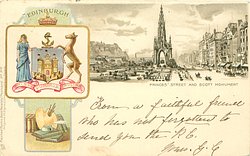 EDINBURGH
PRINCES' STREET AND SCOTT MONUMENT
From a faithful friend
who has not forgotten to
send you the P.C.